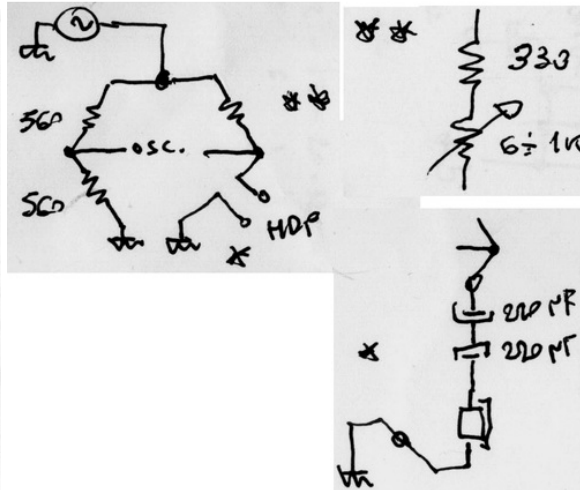 ~
560
OSC.
560
HDP
*
**
**
330
*
220 µF
220 µF